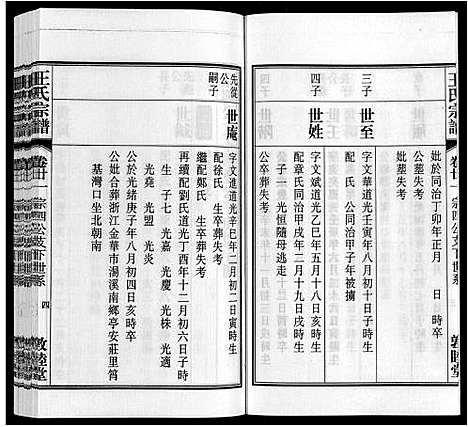 王氏宗譜
卷廿一
宗四公支下世系
敦睦堂
妣於同治丁卯年正月　日　時卒
公墓失考
妣墓失考
三子　世至
字文華道光壬寅年八月初十日子時生
配　氏　公同治甲子年被擄
四子　世姓
字文斌道光乙巳年五月十八日亥時生
配章氏同治甲戌年二月十九日戌時生
子一　光恒隨母逃走
公卒葬失考
先從公嗣子　世庵
字文進道光辛巳年二月初二日寅時生
元配　氏　生卒葬失考
繼配鄭氏　生卒葬失考
續再配劉氏道光丁酉年十二月初六日子時
生　子七　光基　光慶　光株　光適
光堯　光盟　光炎
公於光緒庚子年八月初四日亥時卒
公妣合葬浙江金華市湯溪南鄉亭安莊里筲
基灣口坐北朝南
王氏宗譜
卷廿一
宗四公支下世系
四
敦睦堂